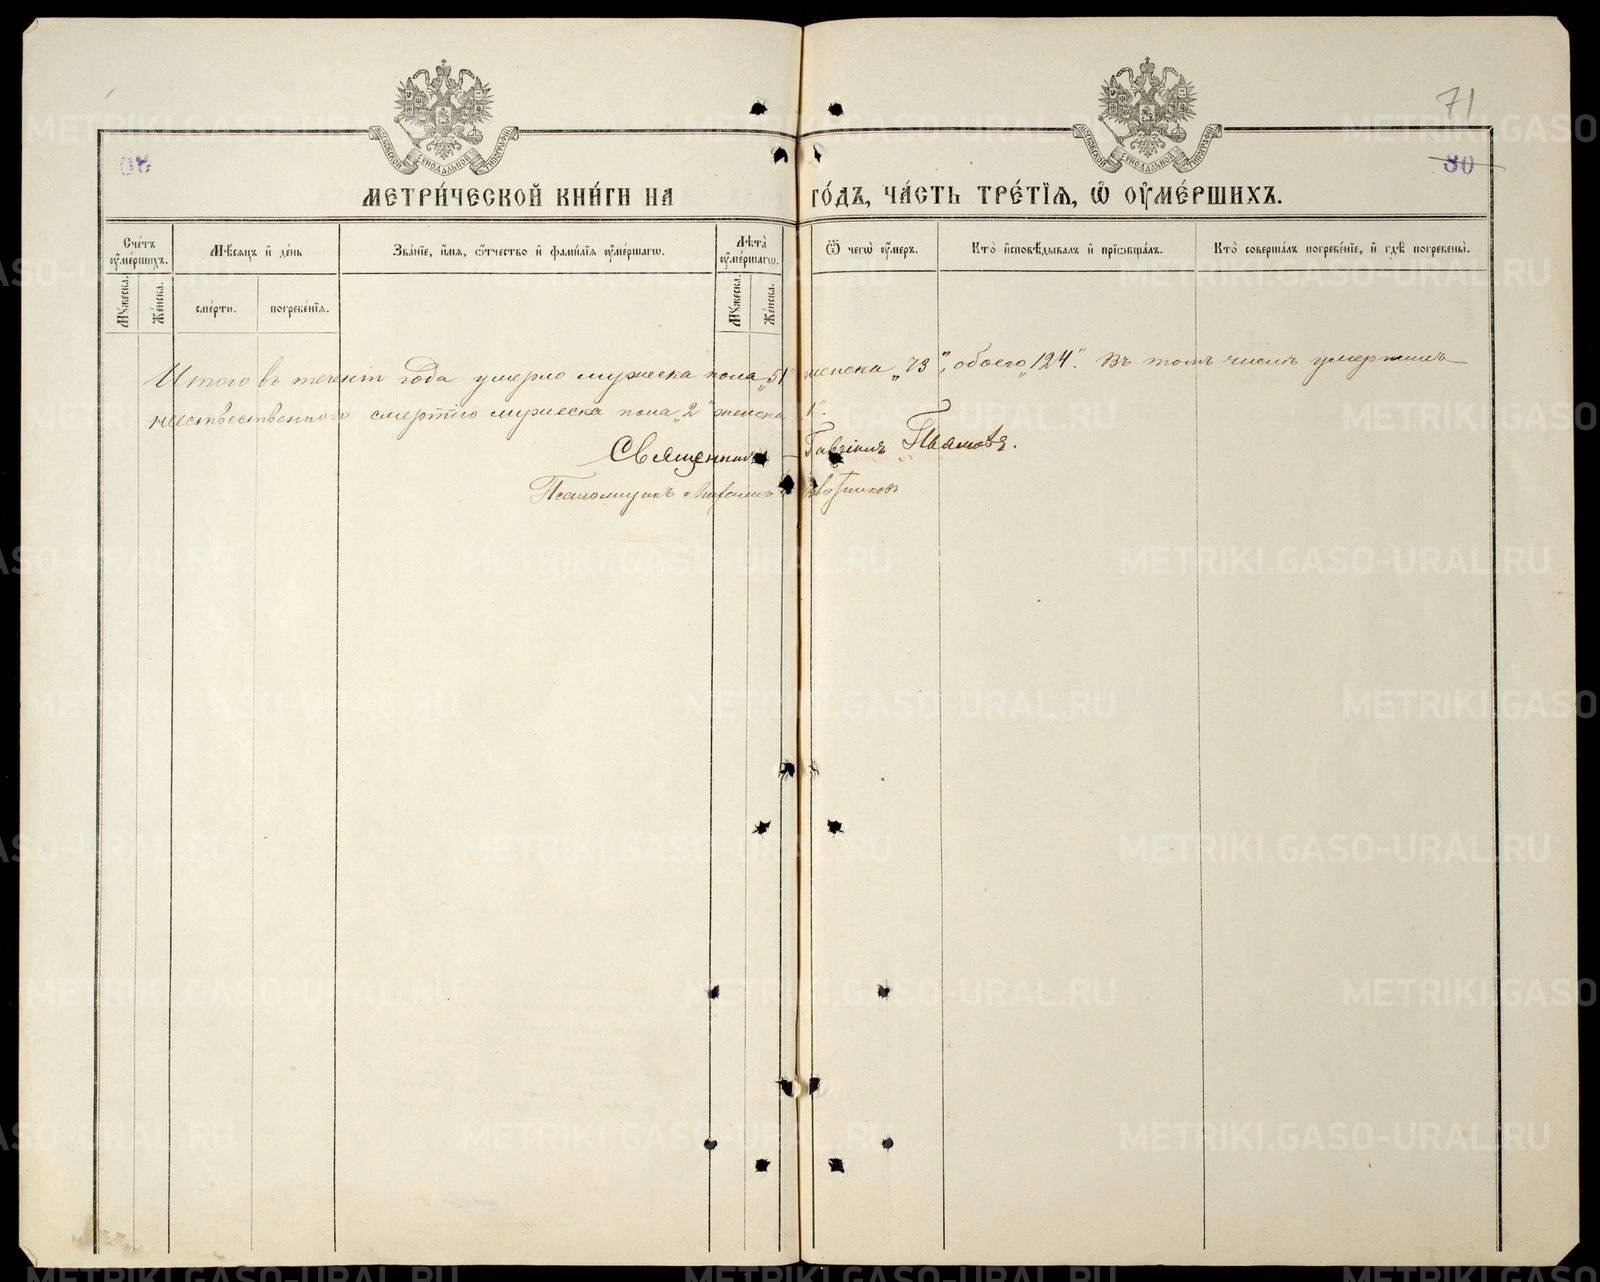 71
80
80
МОСКОВСКОЙ СѴНОДАЛЬНОЙ ТИПОГРАФІИ
МОСКОВСКОЙ СѴНОДАЛЬНОЙ ТИПОГРАФІИ
МЕТРИ́ЧЕСКОЙ КНИ́ГИ НА ГО́ДЪ, ЧА́СТЬ ТРЕ́ТІѦ, Ѡ҆ ОУ҆МЕ́РШИХЪ.
Сче́тъ оу҆ме́ршихъ.
Мѣ́сяцъ и҆ де́нь
Зва́ніе, и҆́мя, ѻ҆́тчество и҆ фами́лія оу҆ме́ршагѡ.
Лѣ́та оу҆ме́ршагѡ.
Ѿ чегѡ̀ оу҆́меръ.
Кто̀ и҆сповѣ́дывалъ и҆ прїѡбща́лъ.
Кто̀ соверша́лъ погребе́ніе, и҆ гдѣ̀ погребены̀.
Мꙋ́жеска.
Же́нска.
сме́рти.
погребе́нїя.
Мꙋ́жеска.
Же́нска.
Итого въ теченіи года умерло мужеска пола „51“ женска „73“, обоего „124“. Въ томъ числѣ умершихъ
неестественною смертію мужеска пола „2“ женска „1“.
Священникъ Гавріилъ
Псаломщикъ Михаилъ
METRIKI.GASO-URAL.RU